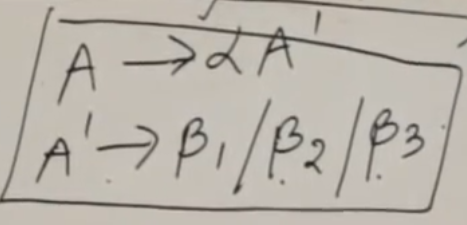 A → αA'
A' → β₁/β₂/β₃